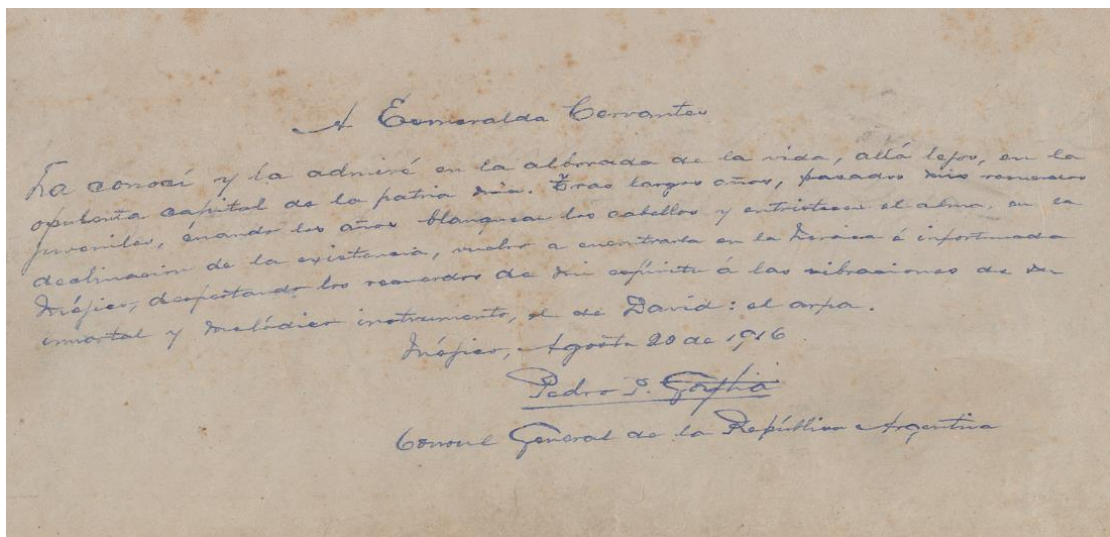 A Esmeralda Cervantes
La conocí y la admiré en la alborada de la vida, allá lejos, en la
opulenta capital de la patria mía. Tras largos años, pasados mis
juveniles, cuando los años blanquean los cabellos y entristecen el alma, en la
declinación de la existencia, vuelvo a encontrarla en la heroica é infortunada
Méjico, despertando los recuerdos de mi espíritu á las vibraciones de su
inmortal y melódico instrumento, el de David: el arpa.
Méjico, Agosto 20 de 1916
Pedro P.
Consul General de la República Argentina